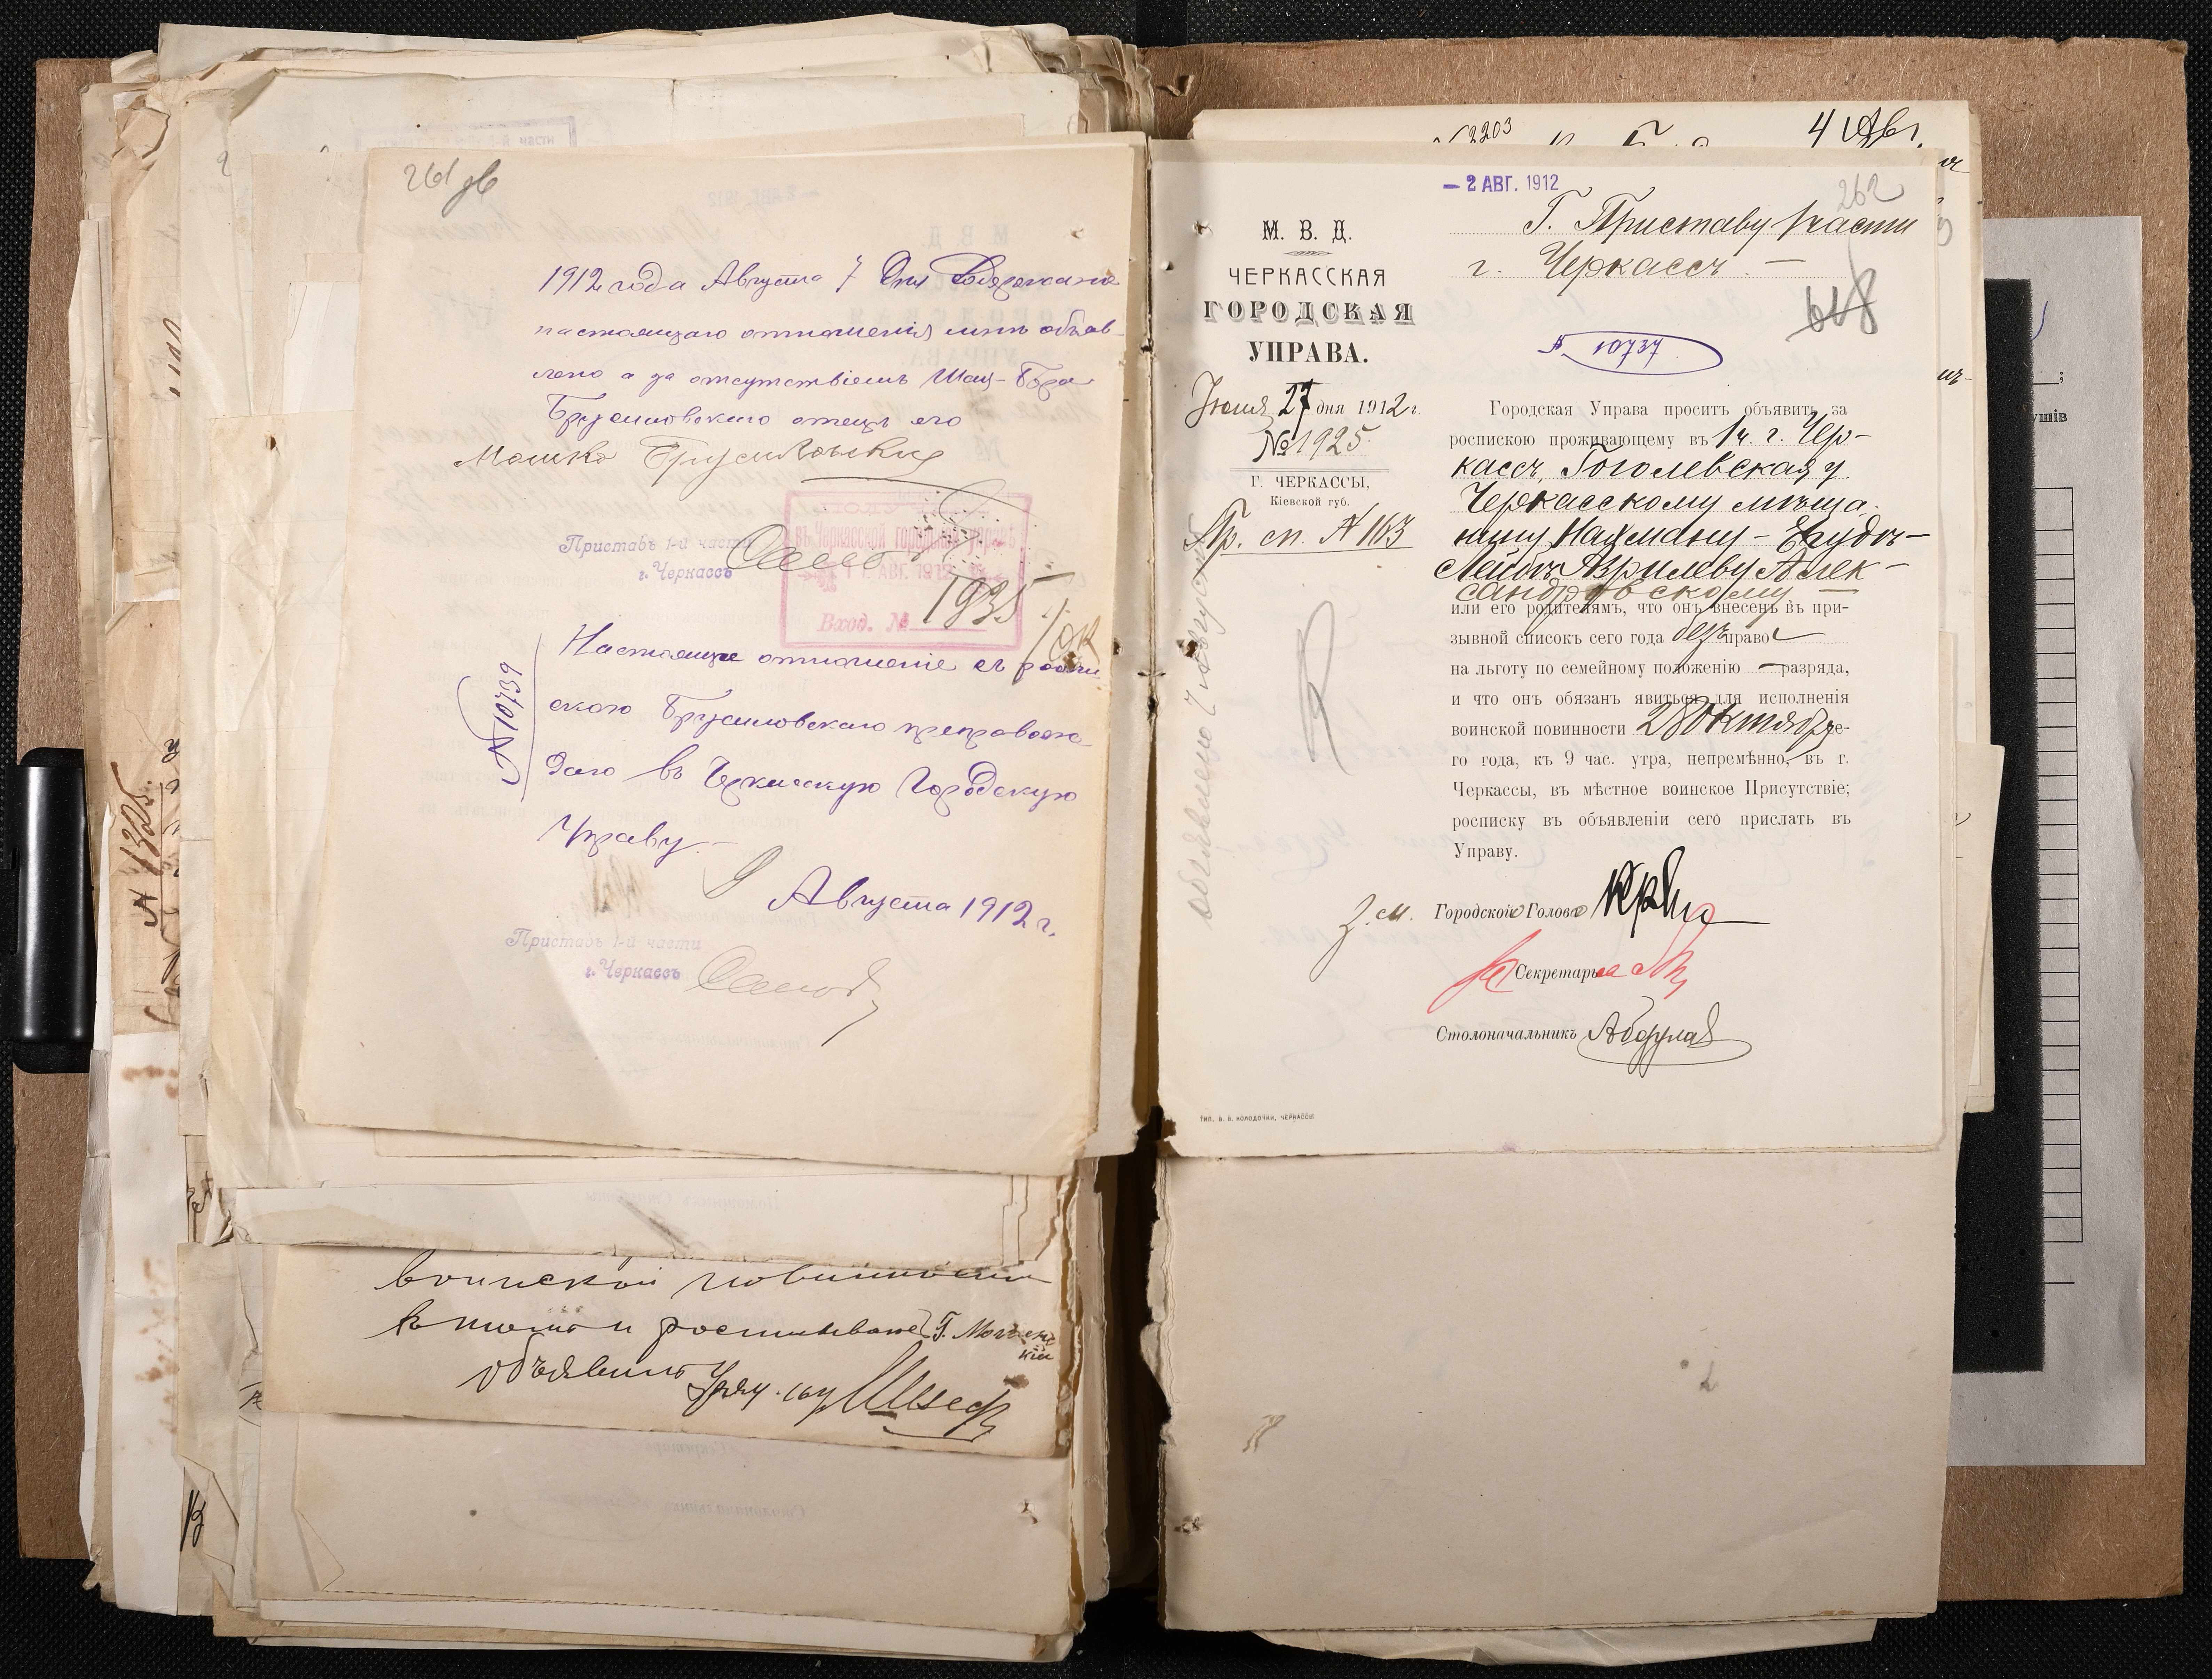 261 об
1912 года Августа 7 дня Содержание
настоящаго отношенія мнѣ объяв-
лено а за отсутствіемъ Шац-Бера
Брусиловскаго отецъ его
Мошко Брусиловскій
Приставъ 1-й части
г. Черкассъ
въ Черкасской городской управѣ
АВГ. 1912
Вход. № 1935
№ 10739
Настоящее отношеніе съ роспи
скою Брусиловскаго препровож
даю въ Черкасскую Городскую
Управу.—
9 Августа 1912 г.
Приставъ 1-й части
г. Черкассъ
воинской повинности
въ томъ и росписываюсь
объявилъ
№ 1325
2203
4 Авг.
— 2 АВГ. 1912
262
Г. Приставу 1 части
г. Черкассъ. —
618
№ 10737
М. В. Д.
ЧЕРКАССКАЯ
ГОРОДСКАЯ
УПРАВА.
Іюля 27 дня 1912 г.
№ 1925
Г. ЧЕРКАССЫ,
Кіевской губ.
Пр. сп. № 163
Городская Управа проситъ объявить за
роспискою проживающему въ 1 ч. г. Чер-
кассъ, Гоголевская у.
Черкасскому мѣща-
нину Нахману-Еудѣ-
Лейбѣ Азрилеву Алек-
сандровскому —
или его родителямъ, что онъ внесенъ въ при-
зывной списокъ сего года безъ права
на льготу по семейному положенію — разряда,
и что онъ обязанъ явиться для исполненія
воинской повинности 28 октября се-
го года, къ 9 час. утра, непремѣнно, въ г.
Черкассы, въ мѣстное воинское Присутствіе;
росписку въ объявленіи сего прислать въ
Управу.
З. м. Городской Голова
Секретарь
Столоначальникъ
объявлено 7 августа
ТИП. В. В. КОЛОДОЧКИ, ЧЕРКАССЫ